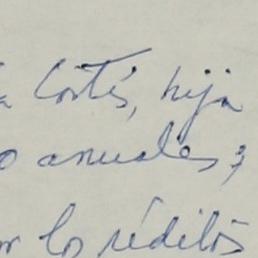 a Cortés, hija
o anuales;
or los réditos